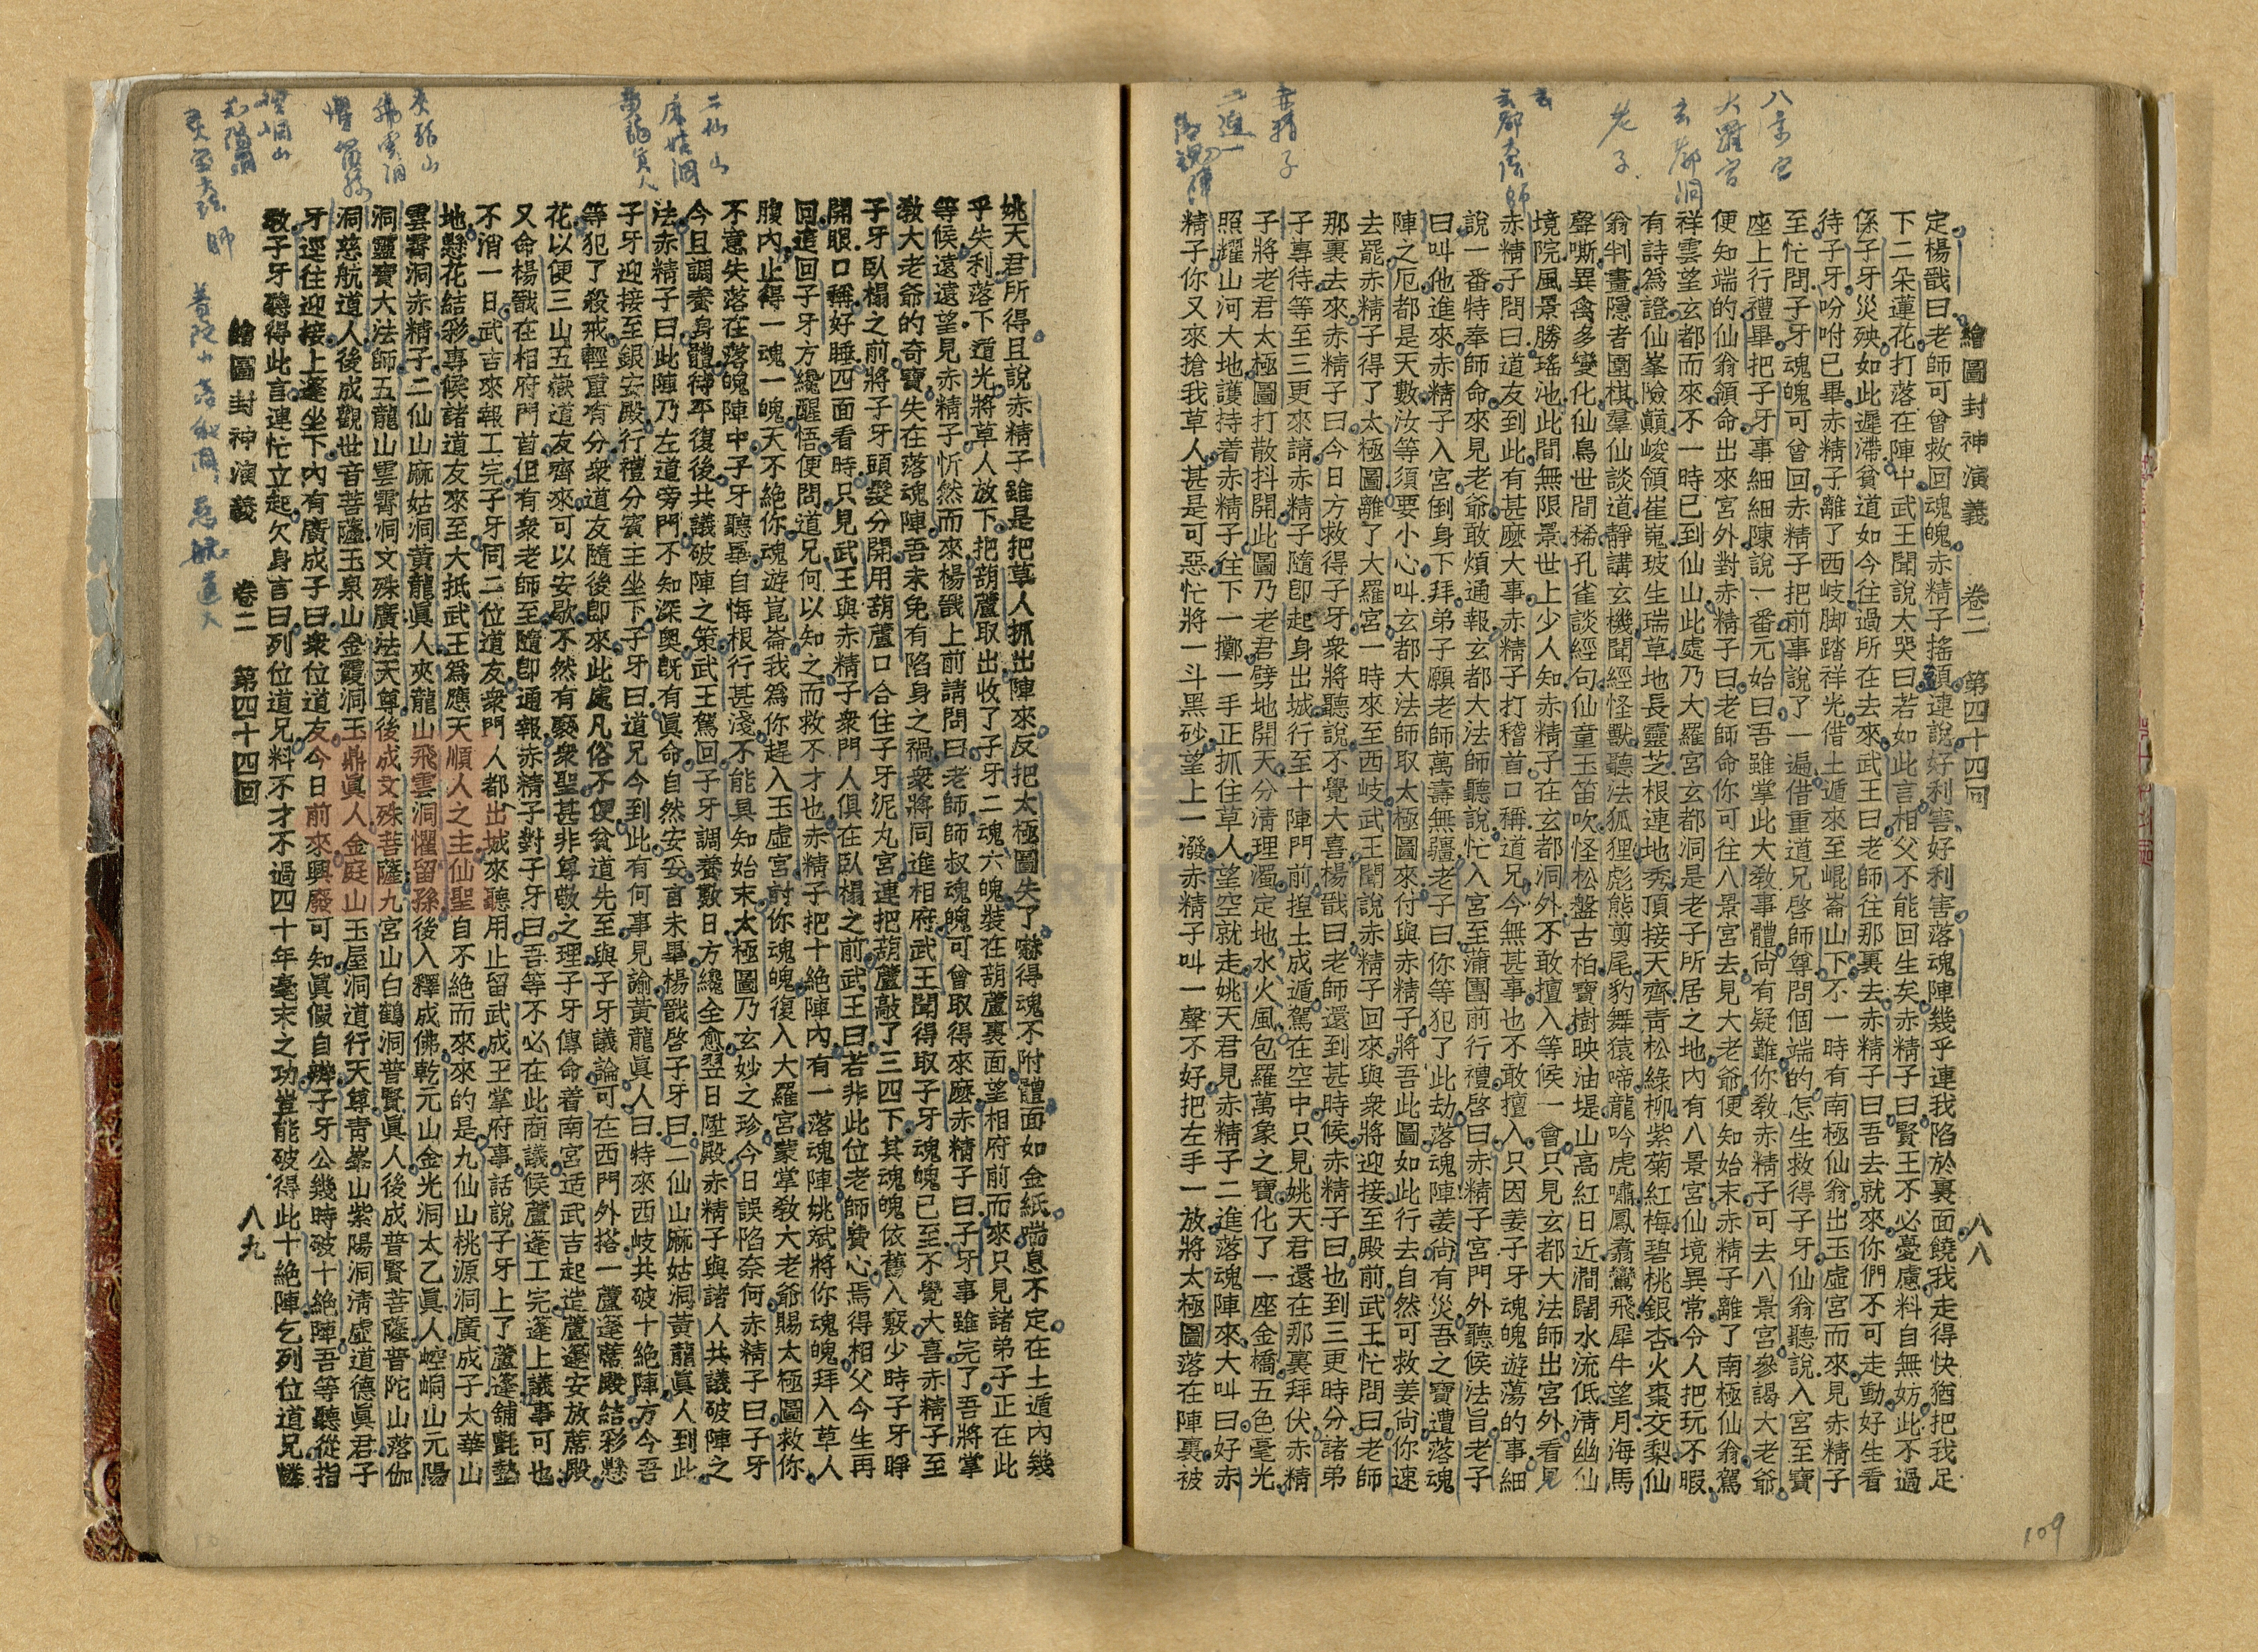 繪圖封神演義　卷二　第四十四回　八八
定楊戩曰老師可曾救回魂魄赤精子搖頭連說好利害好利害落魂陣幾乎連我陷於裏面饒我走得快猶把我足
下二朵蓮花打落在陣中武王聞說大哭曰若如此言相父不能回生矣赤精子曰賢王不必憂慮料自無妨此不過
係子牙災殃如此遲滯貧道如今往過所在去來武王曰老師往那裏去赤精子曰吾去就來你們不可走動好生看
待子牙吩咐已畢赤精子離了西岐脚踏祥光借土遁來至崐崙山下不一時有南極仙翁出玉虛宮而來見赤精子
至忙問子牙魂魄可曾回赤精子把前事說了一遍借重道兄啓師尊問個端的怎生救得子牙仙翁聽說入宮至寶
座上行禮畢把子牙事細細陳說一番元始曰吾雖掌此大敎事體尙有疑難你敎赤精子可去八景宮參謁大老爺
便知端的仙翁領命出來宮外對赤精子曰老師命你可往八景宮去見大老爺便知始末赤精子離了南極仙翁駕
祥雲望玄都而來不一時已到仙山此處乃大羅宮玄都洞是老子所居之地內有八景宮仙境異常令人把玩不暇
有詩爲證仙峯險巔峻領崔嵬玻生瑞草地長靈芝根連地秀頂接天齊靑松綠柳紫菊紅梅碧桃銀杏火棗交梨仙
翁判畫隱者圍棋羣仙談道靜講玄機聞經怪獸聽法狐狸彪熊剪尾豹舞猿啼龍吟虎嘯鳳翥鸞飛犀牛望月海馬
聲嘶異禽多變化仙鳥世間稀孔雀談經句仙童玉笛吹怪松盤古柏寶樹映油堤山高紅日近澗闊水流低淸幽仙
境院風景勝瑤池此間無限景世上少人知赤精子在玄都洞外不敢擅入等候一會只見玄都大法師出宮外看見
赤精子問曰道友到此有甚麼大事赤精子打稽首口稱道兄今無甚事也不敢擅入只因姜子牙魂魄遊蕩的事細
說一番特奉師命來見老爺敢煩通報玄都大法師聽說忙入宮至蒲團前行禮啓曰赤精子宮門外聽候法旨老子
曰叫他進來赤精子入宮倒身下拜弟子願老師萬壽無疆老子曰你等犯了此劫落魂陣姜尙有災吾之寶遭落魂
陣之厄都是天數汝等須要小心叫玄都大法師取太極圖來付與赤精子將吾此圖如此行去自然可救姜尙你速
去罷赤精子得了太極圖離了大羅宮一時來至西岐武王聞說赤精子回來與衆將迎接至殿前武王忙問曰老師
那裏去來赤精子曰今日方救得子牙衆將聽說不覺大喜楊戩曰老師還到甚時候赤精子曰也到三更時分諸弟
子專待等至三更來請赤精子隨卽起身出城行至十陣門前揑土成遁駕在空中只見姚天君還在那裏拜伏赤精
子將老君太極圖打散抖開此圖乃老君劈地開天分淸理濁定地水火風包羅萬象之寶化了一座金橋五色毫光
照耀山河大地護持着赤精子往下一擲一手正抓住草人望空就走姚天君見赤精子二進落魂陣來大叫曰好赤
精子你又來搶我草人甚是可惡忙將一斗黑砂望上一潑赤精子叫一聲不好把左手一放將太極圖落在陣裏被
姚天君所得且說赤精子雖是把草人抓出陣來反把太極圖失了嚇得魂不附體面如金紙喘息不定在土遁內幾
乎失利落下遁光將草人放下把葫蘆取出收了子牙二魂六魄裝在葫蘆裏面望相府前而來只見諸弟子正在此
等候遠遠望見赤精子忻然而來楊戩上前請問曰老師師叔魂魄可曾取得來麼赤精子曰子牙事雖完了吾將掌
敎大老爺的奇寶失在落魂陣吾未免有陷身之禍衆將同進相府武王聞得取子牙魂魄已至不覺大喜赤精子至
子牙臥榻之前將子牙頭髮分開用葫蘆口合住子牙泥丸宮連把葫蘆敲了三四下其魂魄依舊入竅少時子牙睜
開眼口稱好睡四面看時只見武王與赤精子衆門人俱在臥榻之前武王曰若非此位老師費心焉得相父今生再
回這回子牙方纔醒悟便問道兄何以知之而救不才也赤精子把十絕陣內有一落魂陣姚斌將你魂魄拜入草人
腹內止得一魂一魄天不絕你魂遊崑崙我爲你趕入玉虛宮討你魂魄復入大羅宮蒙掌敎大老爺賜太極圖救你
不意失落在落魄陣中子牙聽畢自悔根行甚淺不能具知始末太極圖乃玄妙之珍今日誤陷奈何赤精子曰子牙
今且調養身體待平復後共議破陣之策武王駕回子牙調養數日方纔全愈翌日陞殿赤精子與諸人共議破陣之
法赤精子曰此陣乃左道旁門不知深奧旣有眞命自然安妥言未畢楊戩啓子牙曰二仙山麻姑洞黃龍眞人到此
子牙迎接至銀安殿行禮分賓主坐下子牙曰道兄今到此有何事見諭黃龍眞人曰特來西岐共破十絕陣方今吾
等犯了殺戒輕重有分衆道友隨後卽來此處凡俗不便貧道先至與子牙議論可在西門外搭一蘆蓬蓆殿結彩懸
花以便三山五嶽道友齊來可以安歇不然有褻衆聖甚非尊敬之理子牙傳命着南宮适武吉起造蘆蓬安放蓆殿
又命楊戩在相府門首但有衆老師至隨卽通報赤精子對子牙曰吾等不必在此商議候蘆蓬工完蓬上議事可也
不消一日武吉來報工完子牙同二位道友衆門人都出城來聽用止留武成王掌府事話說子牙上了蘆蓬舖氈墊
地懸花結彩專候諸道友來至大抵武王爲應天順人之主仙聖自不絕而來來的是九仙山桃源洞廣成子太華山
雲霄洞赤精子二仙山麻姑洞黃龍眞人夾龍山飛雲洞懼留孫後入釋成佛乾元山金光洞太乙眞人崆峒山元陽
洞靈寶大法師五龍山雲霄洞文殊廣法天尊後成文殊菩薩九宮山白鶴洞普賢眞人後成普賢菩薩普陀山落伽
洞慈航道人後成觀世音菩薩玉泉山金霞洞玉鼎眞人金庭山玉屋洞道行天尊靑峯山紫陽洞淸虛道德眞君子
牙逕往迎接上蓬坐下內有廣成子曰衆位道友今日前來興廢可知眞假自辨子牙公幾時破十絕陣吾等聽從指
敎子牙聽得此言連忙立起欠身言曰列位道兄料不才不過四十年毫末之功豈能破得此十絕陣乞列位道兄憐
繪圖封神演義　卷二　第四十四回　八九
八景宮
大羅宮
玄都洞
老子
玄
玄都大法師
赤精子
二進
落魂陣
二仙山
麻姑洞
黃龍真人
夾龍山
飛雲洞
懼留孫
崆峒山
元陽洞
灵宝大法師
普陀山落伽洞 慈航道人
109